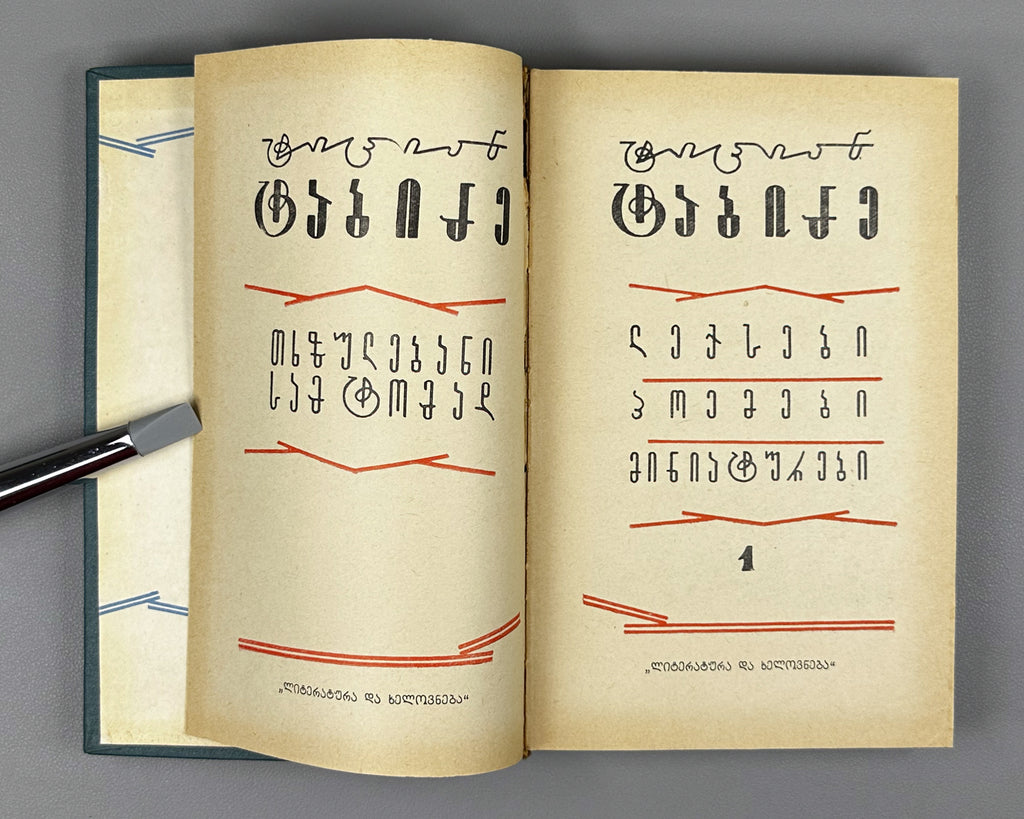 ტიციან
ტაბიძე
თხზულებანი
სამ ტომად
„ლიტერატურა და ხელოვნება“
ტიციან
ტაბიძე
ლექსები
პოემები
მინიატურები
1
„ლიტერატურა და ხელოვნება“